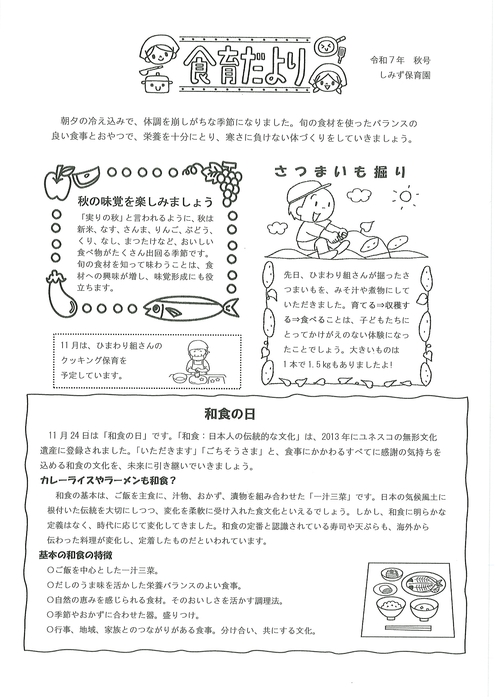 食育だより
令和７年　秋号
しみず保育園
朝夕の冷え込みで、体調を崩しがちな季節になりました。旬の食材を使ったバランスの
良い食事とおやつで、栄養を十分にとり、寒さに負けない体づくりをしていきましょう。
秋の味覚を楽しみましょう
「実りの秋」と言われるように、秋は
新米、なす、さんま、りんご、ぶどう、
くり、なし、まつたけなど、おいしい
食べ物がたくさん出回る季節です。
旬の食材を知って味わうことは、食
材への興味が増し、味覚形成にも役
立ちます。
さつまいも掘り
先日、ひまわり組さんが掘ったさ
つまいもを、みそ汁や煮物にして
いただきました。育てる⇒収穫す
る⇒食べることは、子どもたちに
とってかけがえのない体験になっ
たことでしょう。大きいものは
１本で 1.5㎏もありましたよ!
11 月は、ひまわり組さんの
クッキング保育を
予定しています。
和食の日
11 月 24 日は「和食の日」です。「和食：日本人の伝統的な文化」は、2013 年にユネスコの無形文化
遺産に登録されました。「いただきます」「ごちそうさま」と、食事にかかわるすべてに感謝の気持ちを
込める和食の文化を、未来に引き継いでいきましょう。
カレーライスやラーメンも和食？
和食の基本は、ご飯を主食に、汁物、おかず、漬物を組み合わせた「一汁三菜」です。日本の気候風土に
根付いた伝統を大切にしつつ、変化を柔軟に受け入れた食文化といえるでしょう。しかし、和食に明らかな
定義はなく、時代に応じて変化してきました。和食の定番と認識されている寿司や天ぷらも、海外から
伝わった料理が変化し、定着したものだといわれています。
基本の和食の特徴
〇ご飯を中心とした一汁三菜。
〇だしのうま味を活かした栄養バランスのよい食事。
〇自然の恵みを感じられる食材。そのおいしさを活かす調理法。
〇季節やおかずに合わせた器。盛りつけ。
〇行事、地域、家族とのつながりがある食事。分け合い、共にする文化。